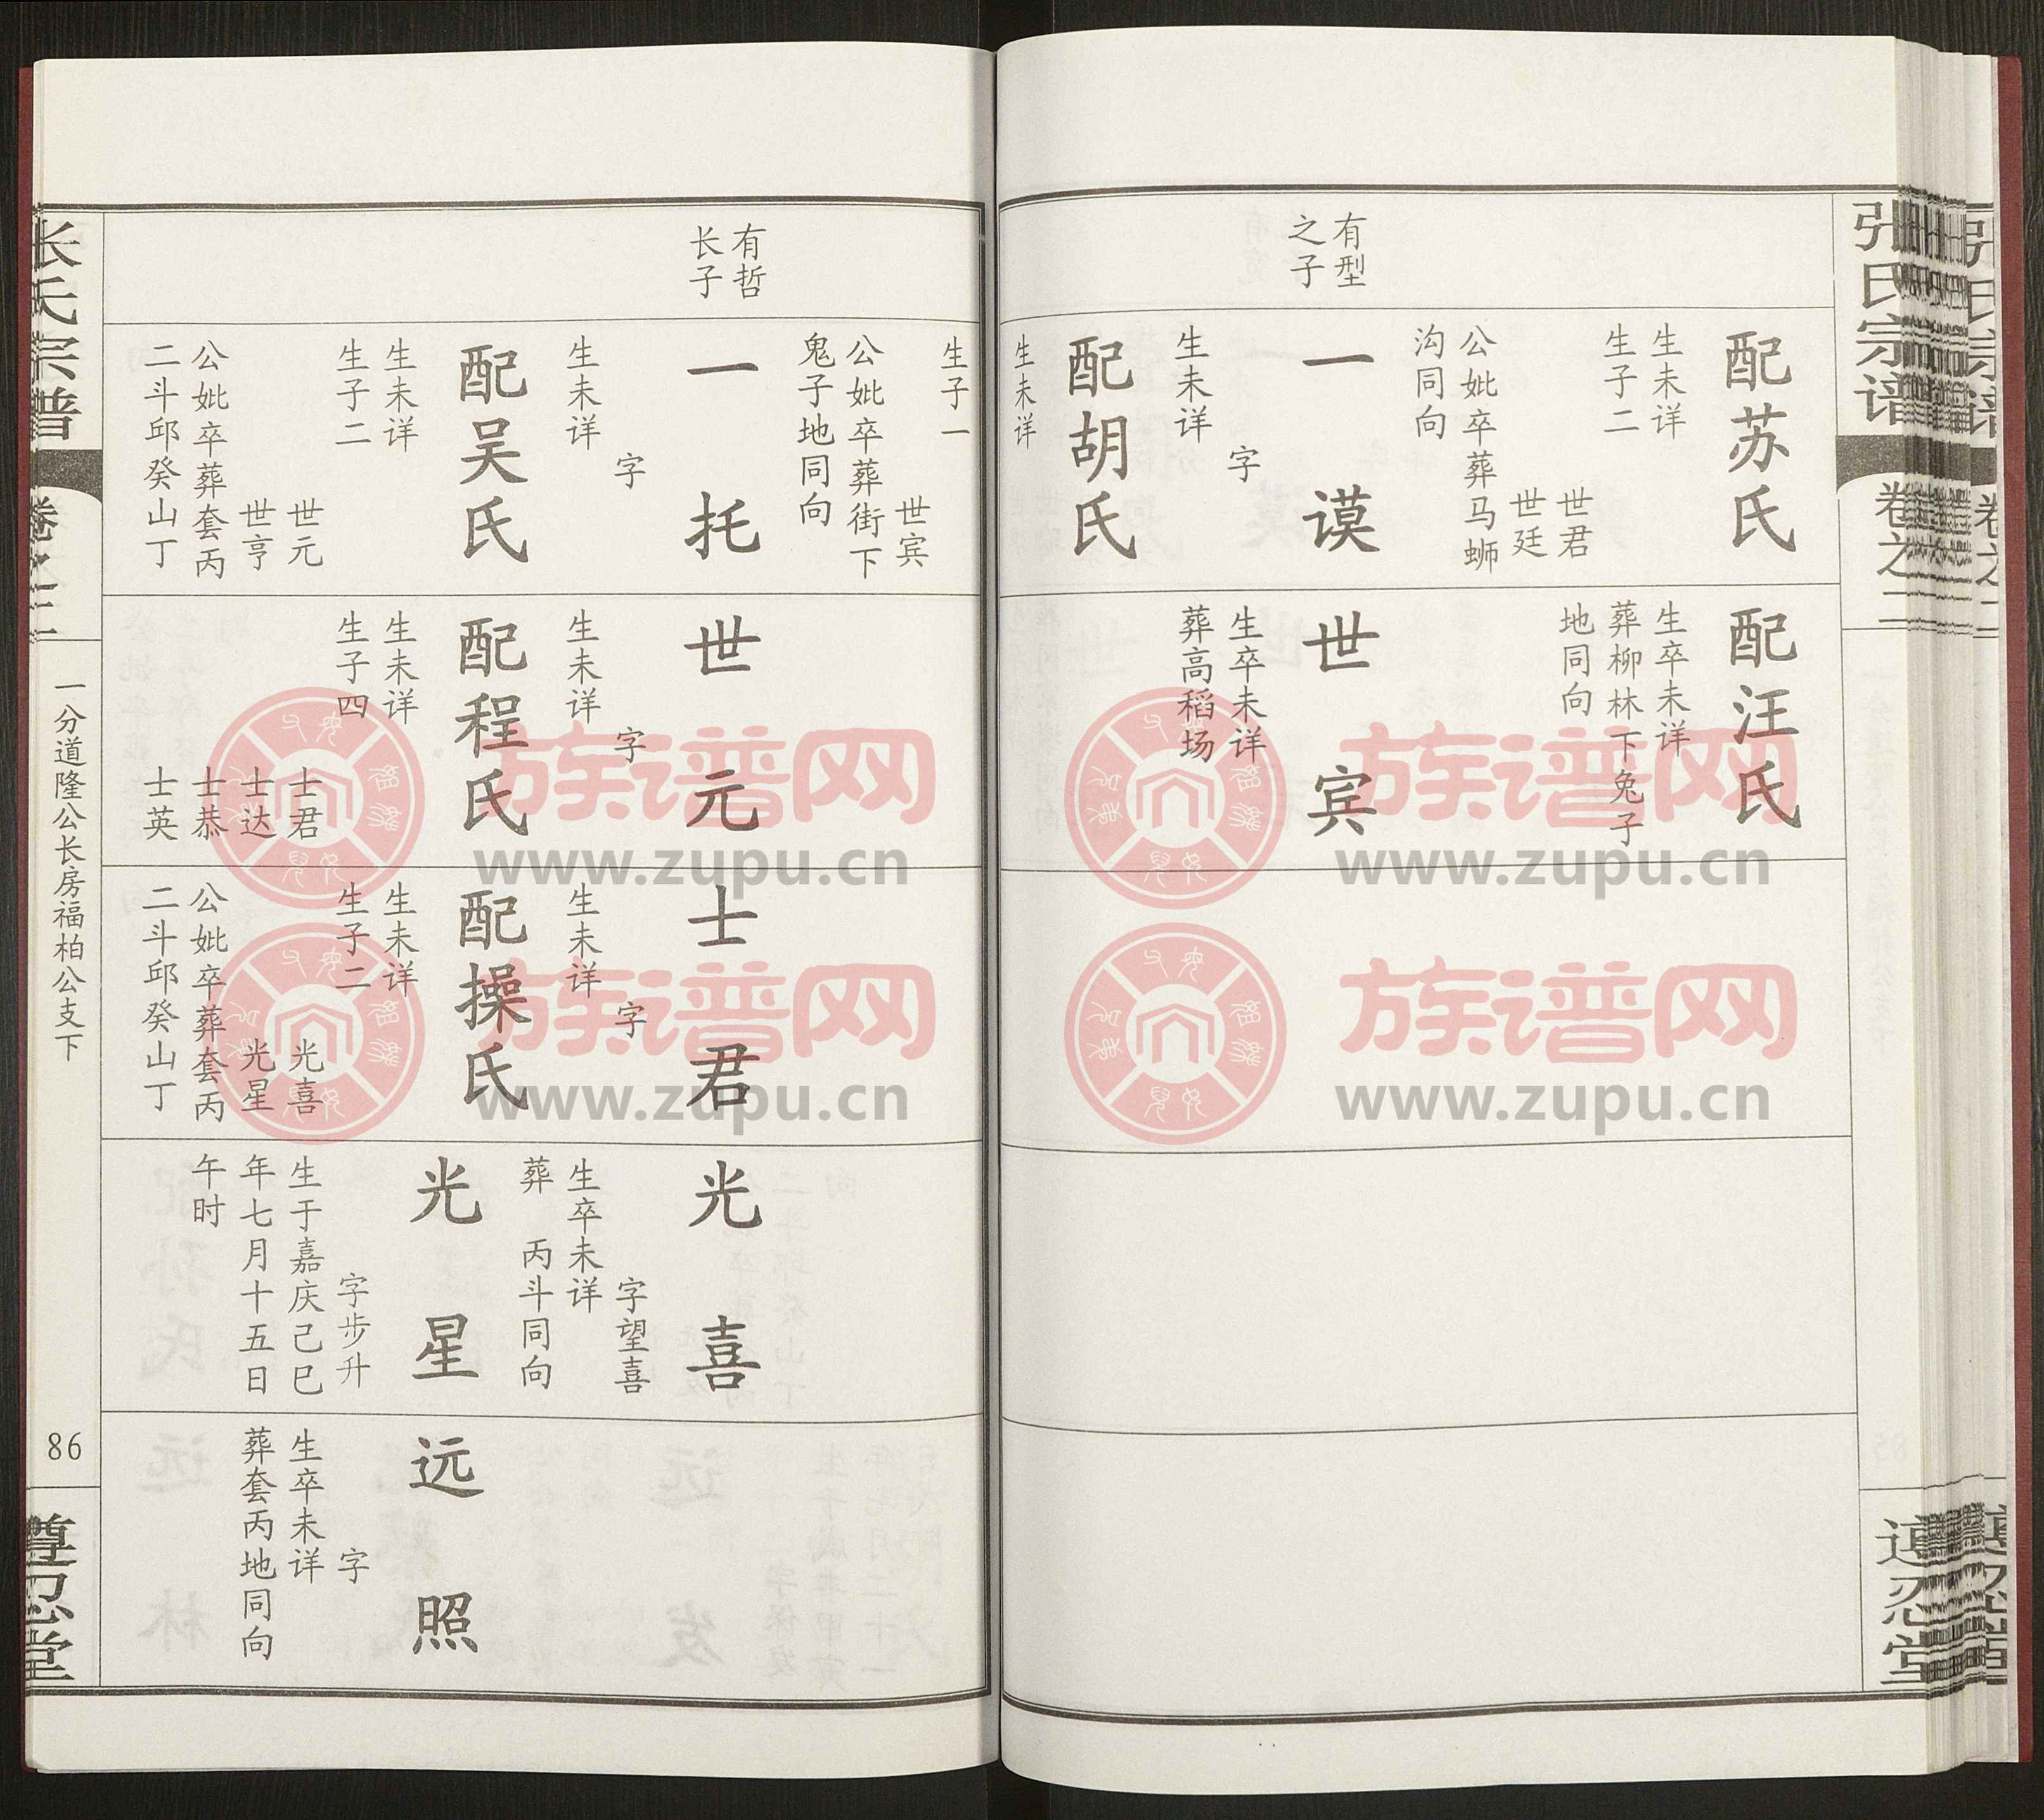 张氏宗谱
卷之二
有型
之子
配苏氏
生未详
生子二
世君
世廷
公妣卒葬马蛳
沟同向
一谟
字
生未详
配胡氏
生未详
配汪氏
生卒未详
葬柳林下兔子
地同向
世宾
生卒未详
葬高稻场
忍堂
有哲
长子
生子一
世宾
公妣卒葬街下
鬼子地同向
一托
字
生未详
配吴氏
生未详
生子二
世元
世亨
公妣卒葬套丙
二斗邱癸山丁
世元
字
生未详
配程氏
生未详
生子四
士君
士达
士恭
士英
士君
字
生未详
配操氏
生未详
生子二
光喜
光星
公妣卒葬套丙
二斗邱癸山丁
光喜
字望喜
生卒未详
葬 丙斗同向
光星
字步升
生于嘉庆己巳
年七月十五日
午时
远照
字
生卒未详
葬套丙地同向
张氏宗谱
卷之二
一分道隆公长房福柏公支下
86
尊忍堂
族谱网
www.zupu.cn
族谱网
www.zupu.cn
族谱网
www.zupu.cn
族谱网
www.zupu.cn